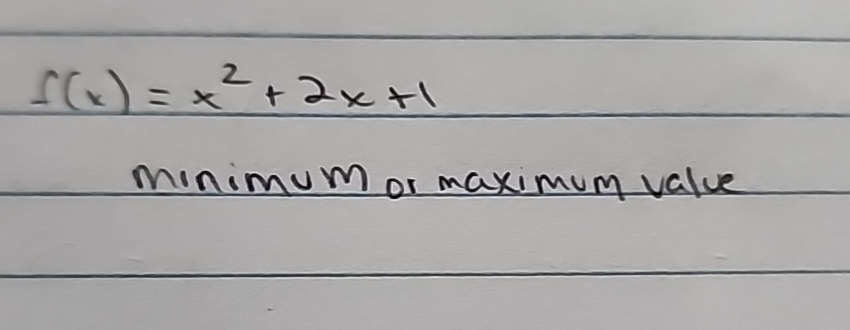 f(x) = x² + 2x + 1
minimum or maximum value